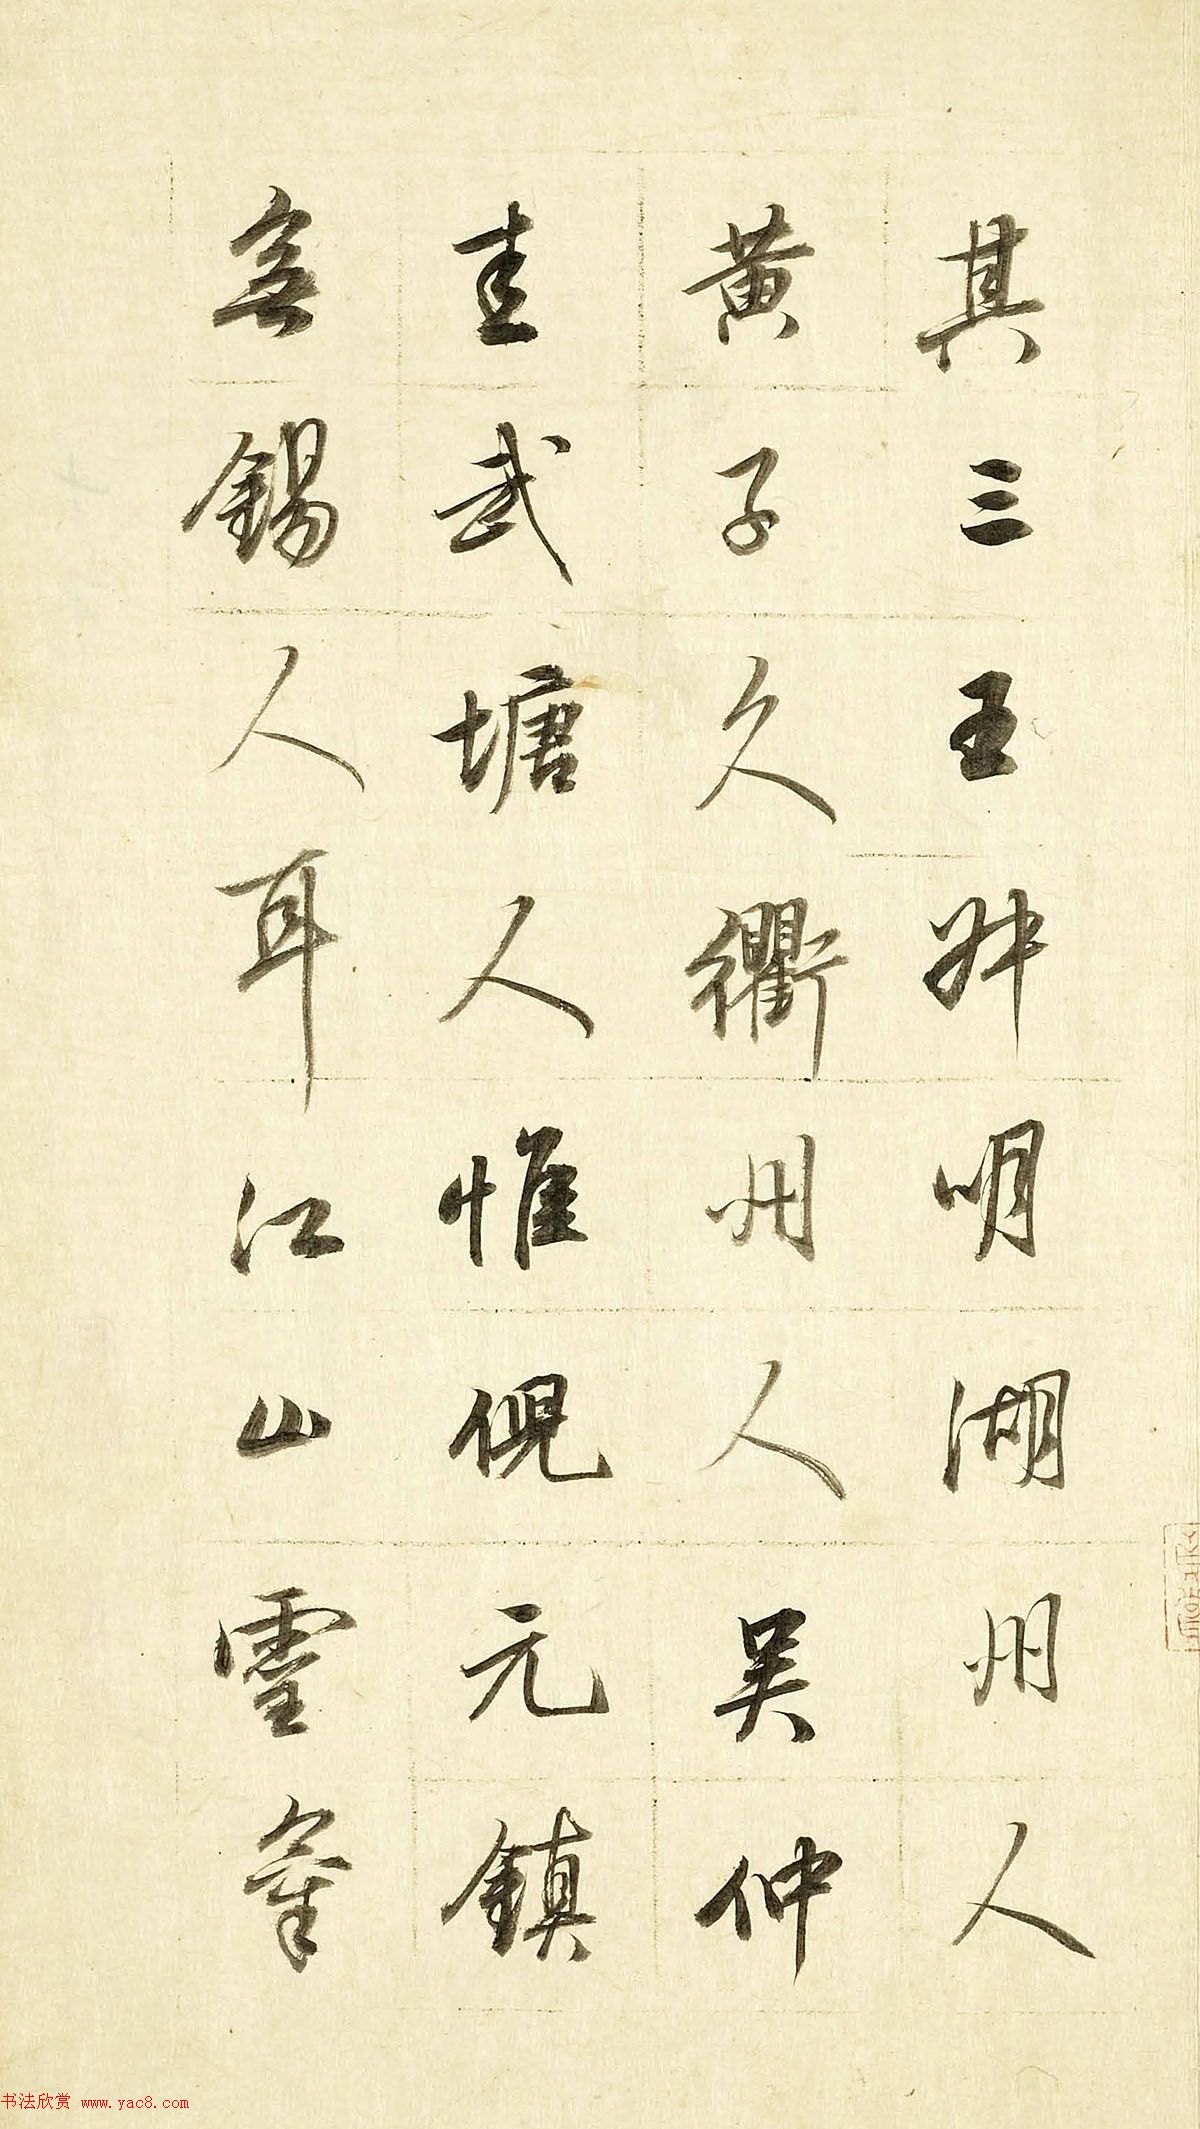 其三王叔明湖州人
黄子久衢州人吳仲
圭武塘人惟倪元鎮
無錫人耳江山靈氣
书法欣赏 www.yac8.com